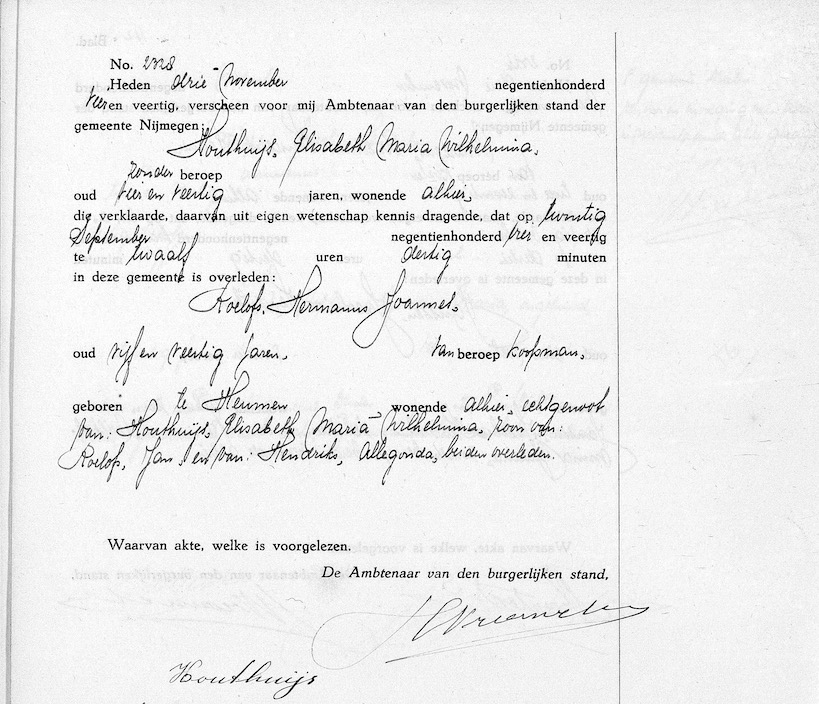 No. 2328
Heden drie November negentienhonderd
vier en veertig, verscheen voor mij Ambtenaar van den burgerlijken stand der
gemeente Nijmegen:
Houthuijs, Elisabeth Maria Wilhelmina,
zonder beroep
oud vier en veertig jaren, wonende alhier,
die verklaarde, daarvan uit eigen wetenschap kennis dragende, dat op twintig
September negentienhonderd vier en veertig
te twaalf uren dertig minuten
in deze gemeente is overleden:
Roelofs, Hermanus Joannes,
oud vijf en veertig jaren, van beroep koopman,
geboren te Heumen wonende alhier, echtgenoot
van: Houthuijs, Elisabeth Maria Wilhelmina, zoon van:
Roelofs, Jan, en van: Hendriks, Allegonda, beiden overleden.
Waarvan akte, welke is voorgelezen.
De Ambtenaar van den burgerlijken stand,
Houthuijs